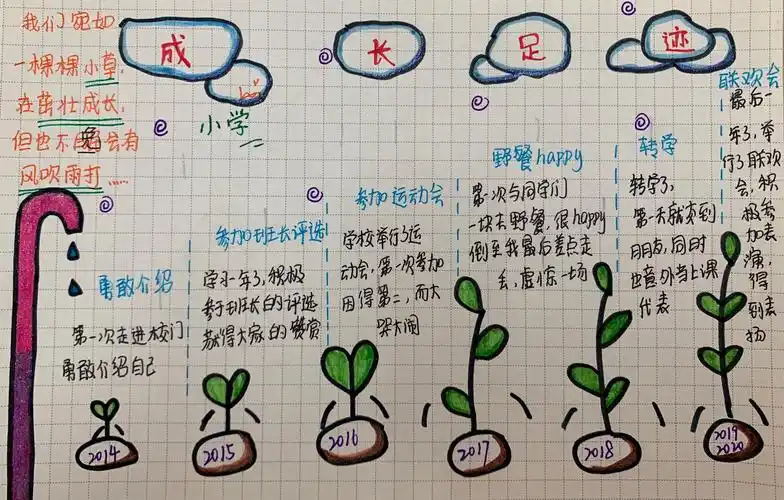 成长足迹
小学
我们宛如
一棵棵小草,
在茁壮成长,
但也不免会有
风吹雨打……
勇敢介绍
第一次走进校门
勇敢介绍自己
2014
参加班长评选
学习一年了,积极
参与班长的评选
获得大家的赞赏
2015
参加运动会
学校举行了运
动会,第一次参加
因得第二,而大
哭大闹
2016
野餐happy
第一次与同学们
一块去野餐,很happy
倒至我最后差点走
丢,虚惊一场
2017
转学
转学了,
第一天就交到
朋友,同时
也意外当上课
代表
2018
联欢会
最后一
年了,举
行了联欢
会,积
极参
加表
演,得
到表
扬
2019
2020